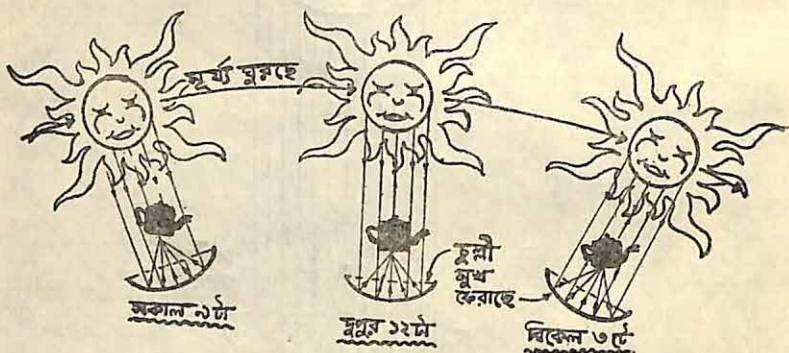 সূর্য্য ঘুরছে
চুল্লী
মুখ
ফেরাচ্ছে
সকাল ৯টা
দুপুর ১২টা
বিকেল ৩টে